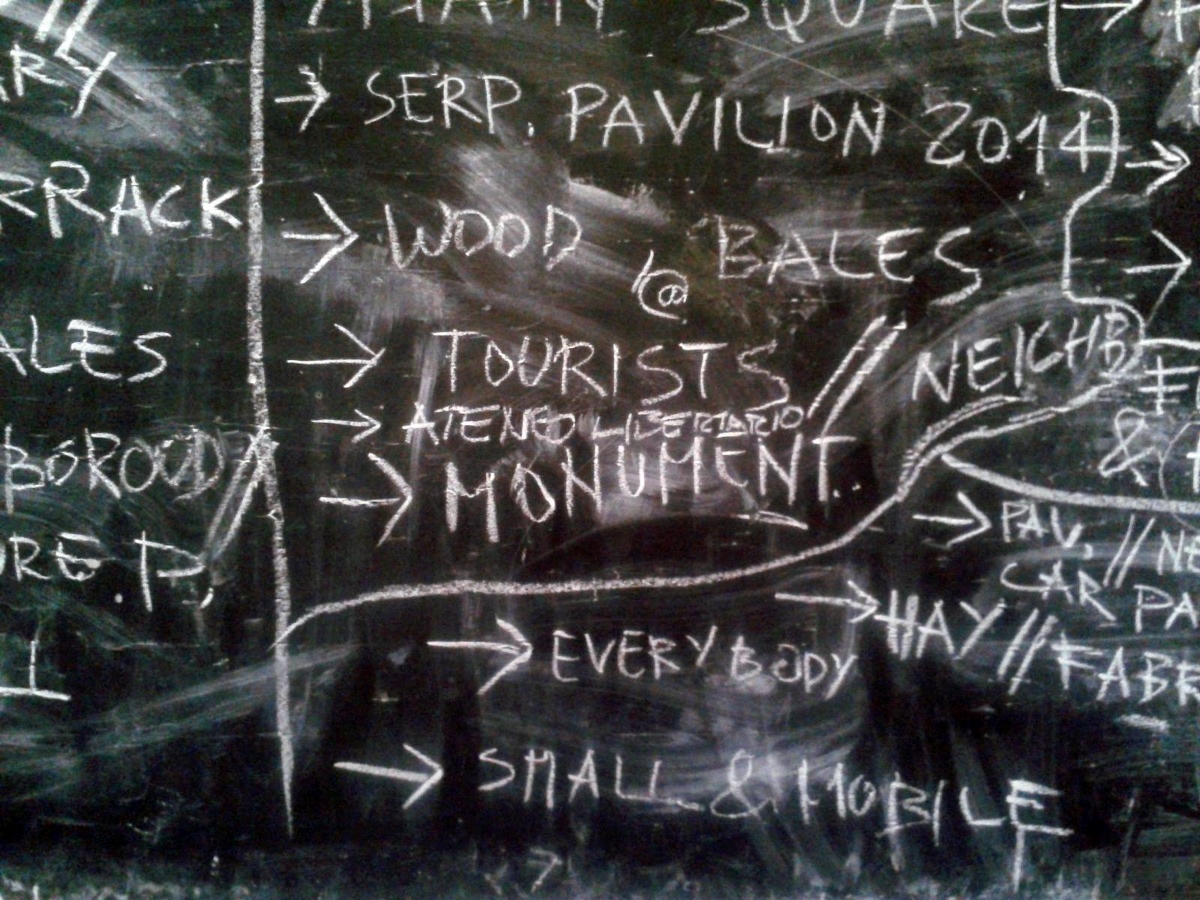 SQUARE →
→ SERP. PAVILION 2014 →
RRACK
→ WOOD @ BALES →
ALES
→ TOURISTS // NEIGHB
→ ATENEO LIBERTARIO
BOROOD
→ MONUMENT..
&
→ PAV. // NE
URE P.
CAR PA
→ HAY // FABR
→ EVERYBODY
I
→ SMALL & MOBILE